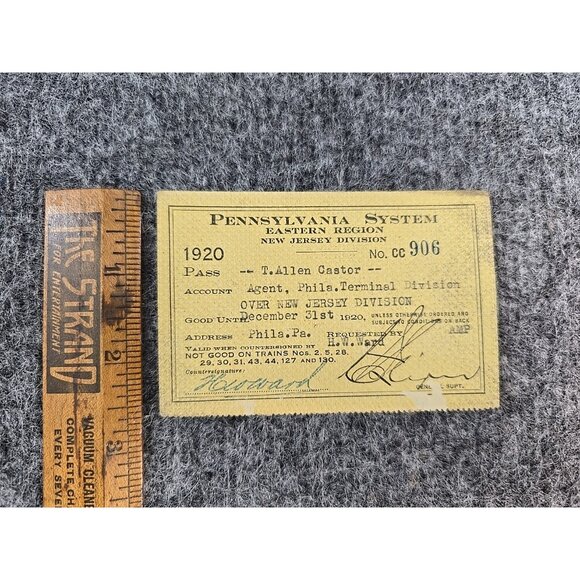 PENNSYLVANIA SYSTEM
EASTERN REGION
NEW JERSEY DIVISION
1920 No. CC 906
PASS -- T.Allen Castor --
ACCOUNT Agent, Phila.Terminal Division
OVER NEW JERSEY DIVISION
GOOD UNTIL December 31st 1920, UNLESS OTHERWISE ORDERED AND
SUBJECT TO CONDITIONS ON BACK
ADDRESS Phila.Pa. REQUESTED BY AMP
VALID WHEN COUNTERSIGNED BY H.W.Ward
NOT GOOD ON TRAINS NOS. 2, 5, 28,
29, 30, 31, 43, 44, 127 AND 130.
Countersignature:
HWWard
GENERAL SUPT.
THE STRAND
FOR ENTERTAINMENT
1 2 3
VACUUM CLEANE
COMPLETE, CH
EVERY SEVE